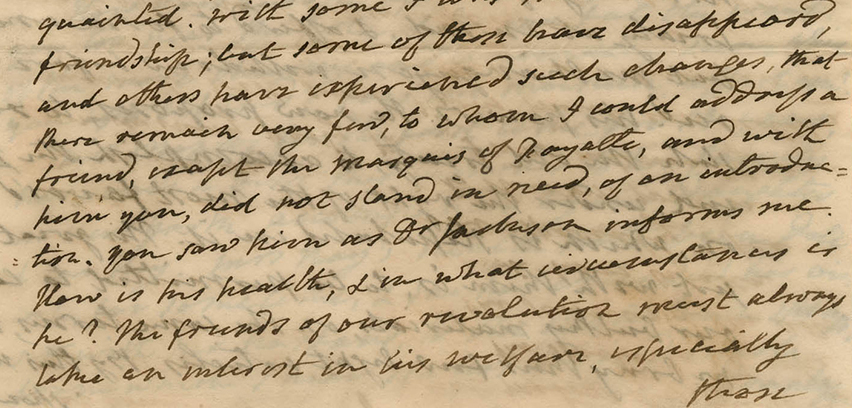 quainted. With some I was
friendship; but some of those have disappeard,
and others have experienced such changes, that
there remain very few, to whom I could address a
friend, except the Marquis of Fayatte, and with
him you, did not stand in need, of an introduc=
tion. you saw him as Dr Jackson informs me.
How is his health, & in what circumstances is
he? The friends of our revolution must always
take an interest in his welfare, especially
those